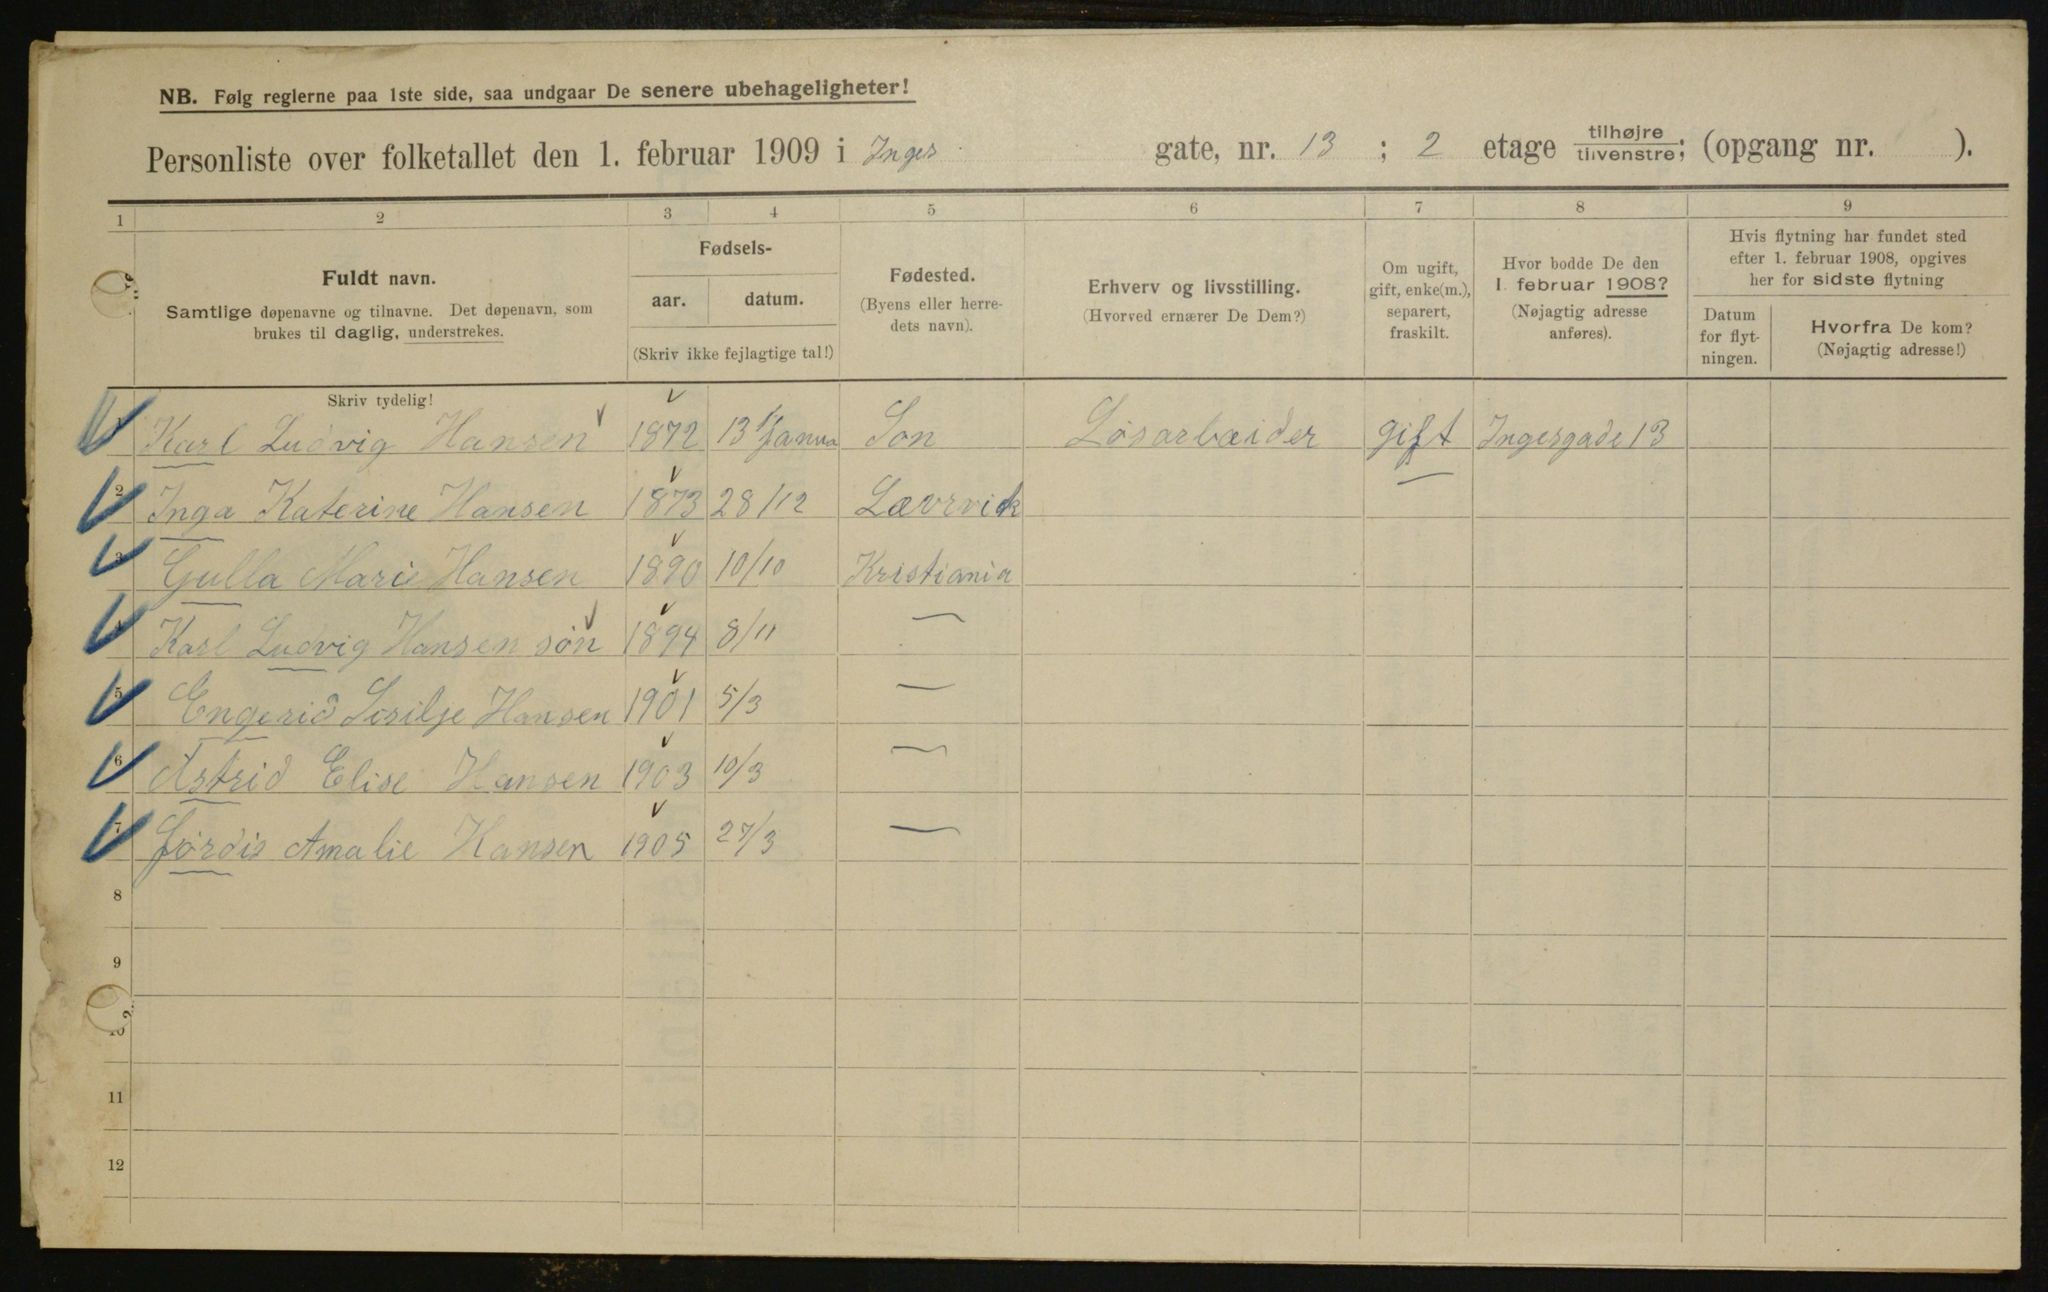 NB. Følg reglerne paa 1ste side, saa undgaar De senere ubehageligheter!
Personliste over folketallet den 1. februar 1909 i Inges gate, nr. 13 ; 2 etage tilhøjre/tilvenstre; (opgang nr. ).
1 2 3 4 5 6 7 8 9
Fuldt navn.
Samtlige døpenavne og tilnavne. Det døpenavn, som
brukes til daglig, understrekes.
Skriv tydelig!
Fødsels-
aar. datum.
(Skriv ikke fejlagtige tal!)
Fødested.
(Byens eller herre-
dets navn).
Erhverv og livsstilling.
(Hvorved ernærer De Dem?)
Om ugift,
gift, enke(m.),
separert,
fraskilt.
Hvor bodde De den
1. februar 1908?
(Nøjagtig adresse
anføres).
Hvis flytning har fundet sted
efter 1. februar 1908, opgives
her for sidste flytning
Datum
for flyt-
ningen.
Hvorfra De kom?
(Nøjagtig adresse!)
1 Karl Ludvig Hansen 1872 13 Janua Son Løsarbæider gift Ingesgade 13
2 Inga Katerine Hansen 1873 28/12 Lævrvick
3 Gulla Marie Hansen 1890 10/10 Kristiania
4 Karl Ludvig Hansen søn 1894 8/11 —
5 Engerid Hansen 1901 5/3 —
6 Astrid Elise Hansen 1903 10/3 —
7 Jørdis Amalie Hansen 1905 27/3 —
8
9
10
11
12